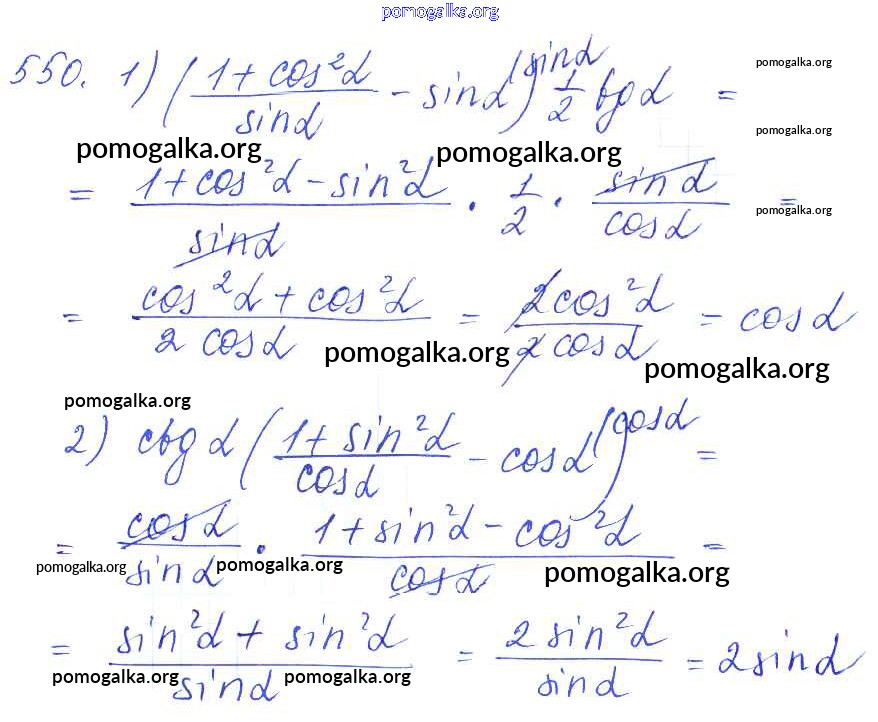 pomogalka.org
550. 1) ((1 + cos²α)/sinα - sinα^(sinα) ) 1/2 tg α =
pomogalka.org
pomogalka.org
pomogalka.org pomogalka.org
= (1 + cos²α - sin²α)/sinα · 1/2 · sinα/cosα =
pomogalka.org
= (cos²α + cos²α)/(2 cosα) = 2cos²α/(2 cosα) = cosα
pomogalka.org pomogalka.org
pomogalka.org
2) ctg α ((1 + sin²α)/cosα - cosα^(cosα) ) =
= cosα/sinα · (1 + sin²α - cos²α)/cosα =
pomogalka.org pomogalka.org pomogalka.org
= (sin²α + sin²α)/sinα = 2 sin²α/sinα = 2sinα
pomogalka.org pomogalka.org